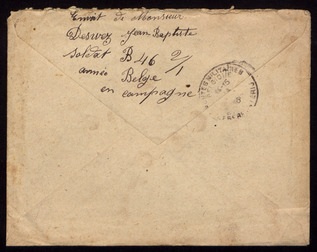 Envoi de Monsieur
Jean Baptiste
Soldat B 46 2/1
armée Belge
en campagne
MILITAIRES